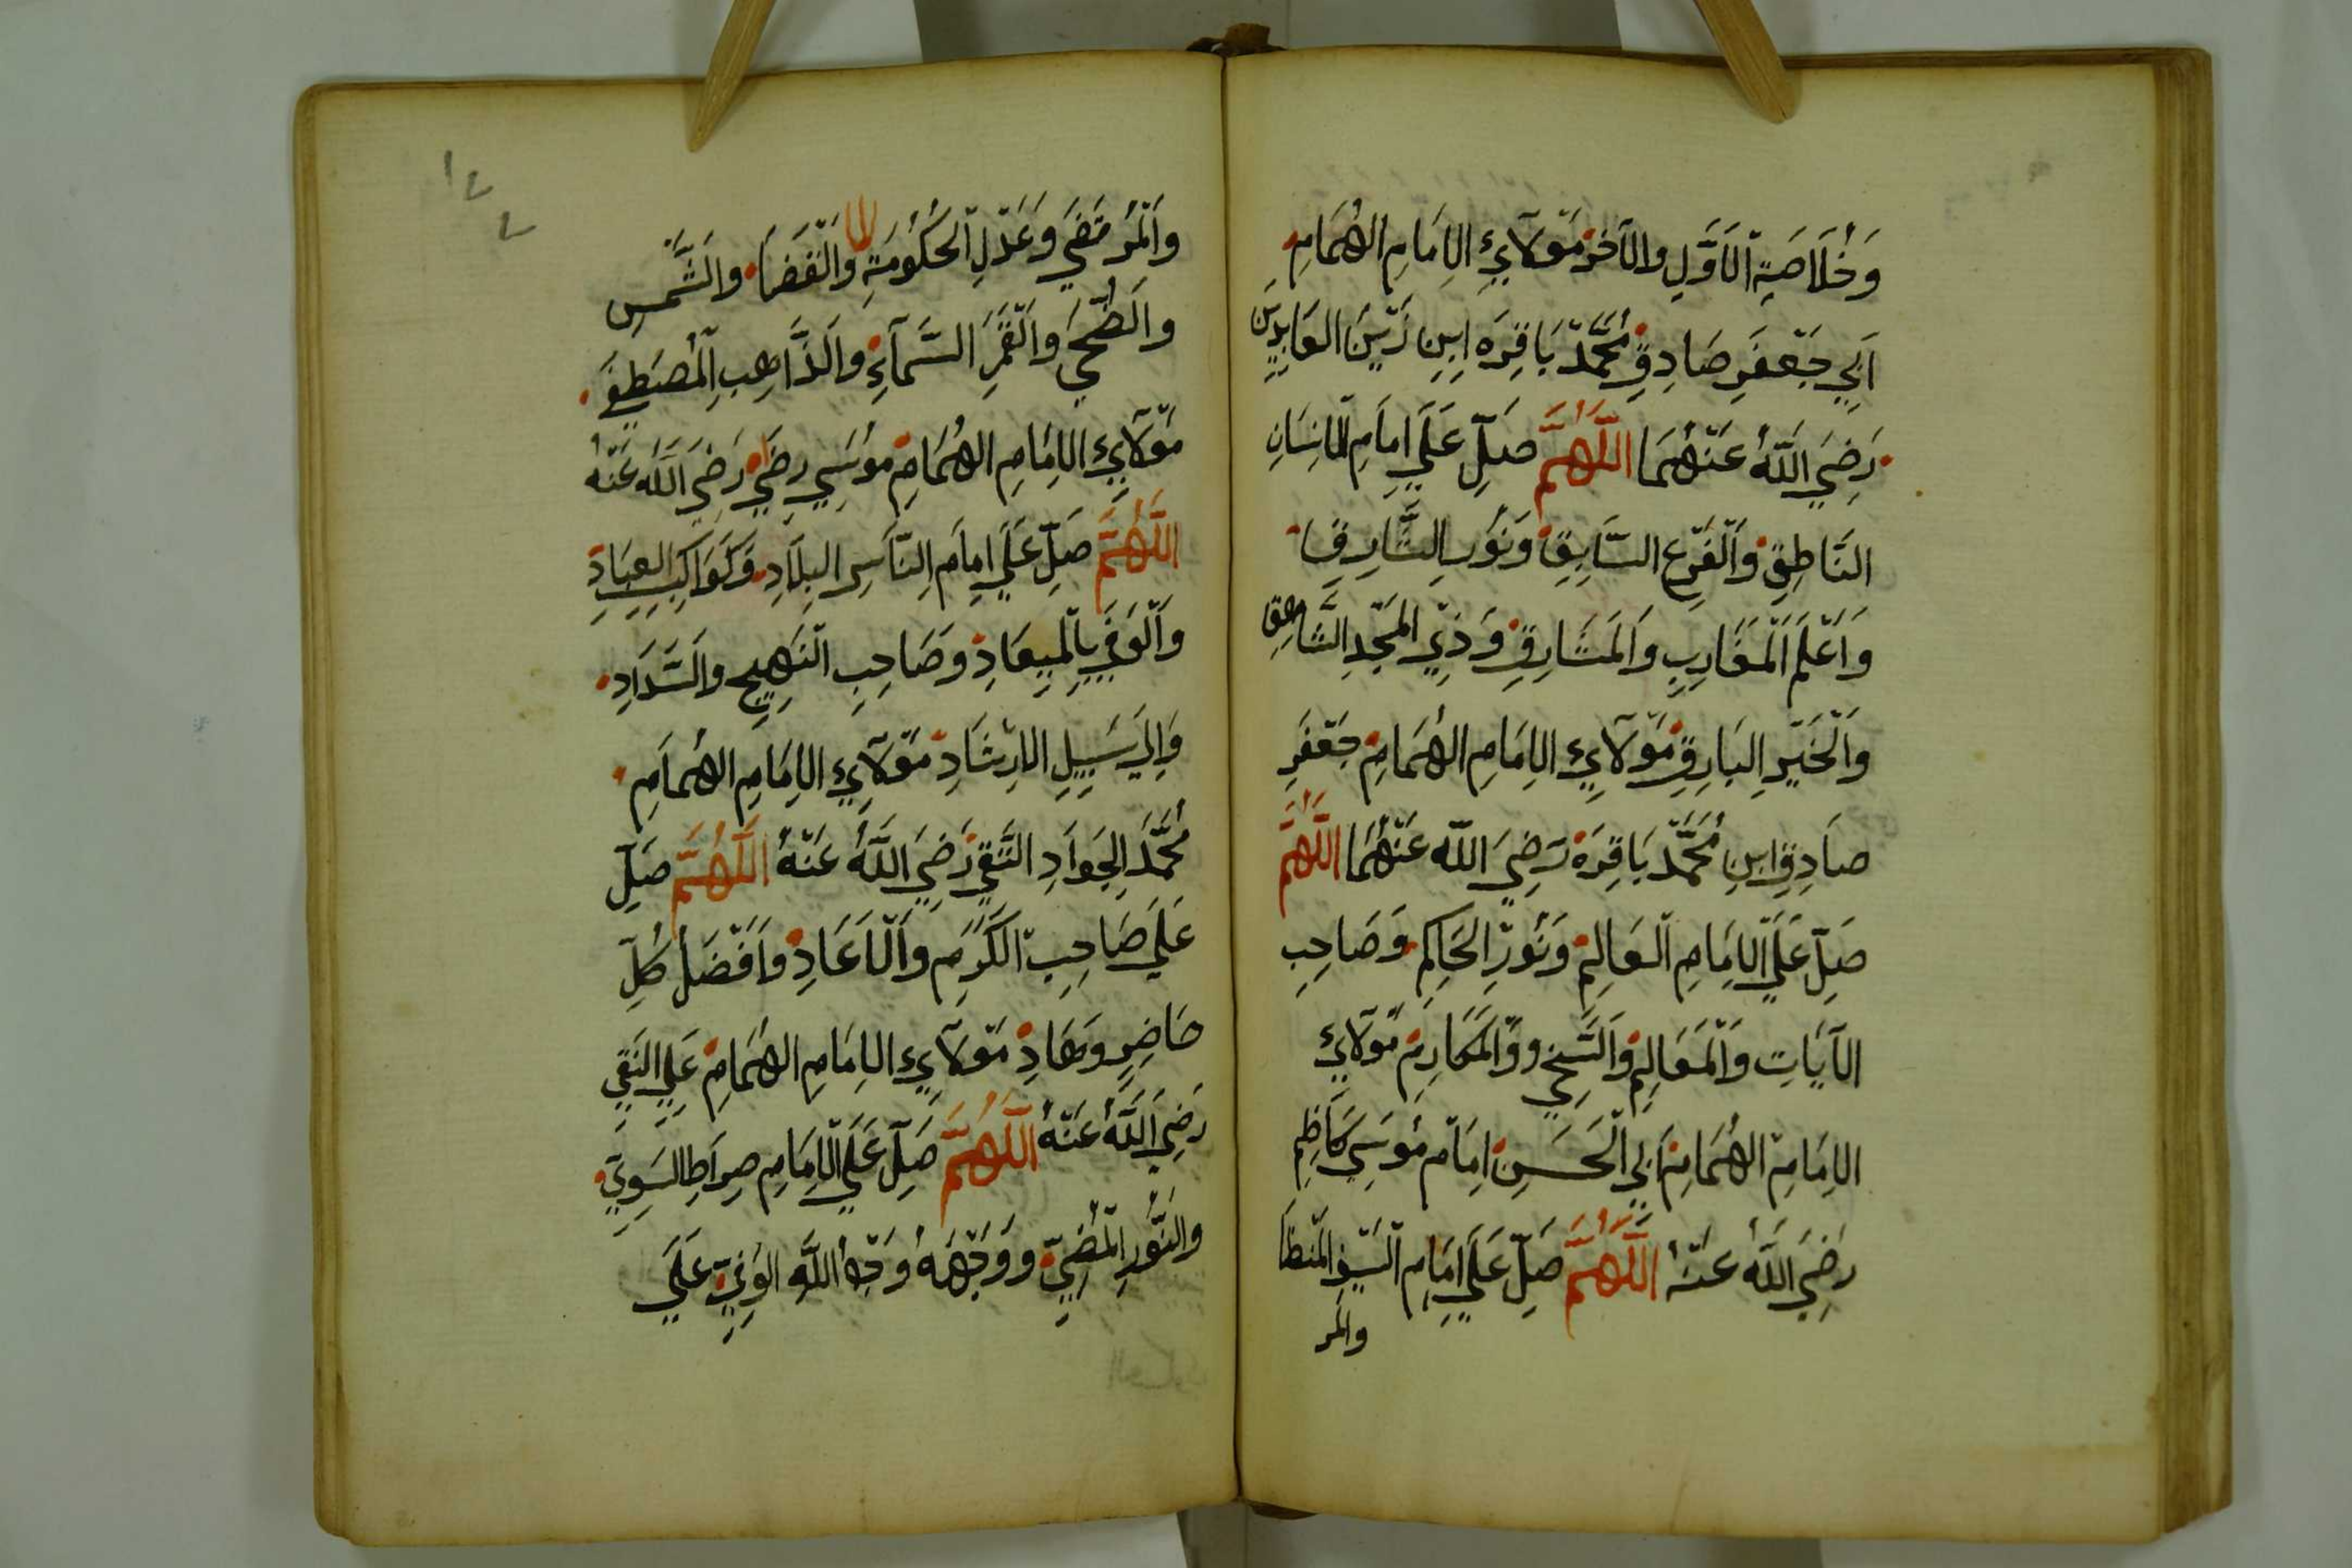 وَخُلَاصَةِ الْاَوَّلِ وَالْآخِرْ مَوْلَايِءِ الْاِمَامِ الْهُمَامِ
اَبِي جَعْفَرِ صَادِقِ مُحَمَّدْ بَاقِرَه اِبِن زَيْنَ الْعَابِدِيْنَ
رَضِيَ اللّٰهُ عَنْهُمَا اللّٰهُمَّ صَلِّ عَلَي اِمَامِ الْاِنْسَانِ
النَّاطِقِ وَالْفَرْعِ السَّابِقِ وَنُوْرِ الشَّارِقِ
وَاَعْلَمِ الْمَغَارِبِ وَالْمَشَارِقِ وَذِي الْمَجْدِ الشَّاهِقِ
وَالْخَيْرِ الْبَارِقِ مَوْلَايِءِ الْاِمَامِ الْهُمَامِ جَعْفَرِ
صَادِقِ ابِنِ مُحَمَّدْ بَاقِرَه رَضِيَ اللّٰه عَنْهُمَا اللّٰهُمَّ
صَلِّ عَلَي الْاِمَامِ الْعَالِمِ وَنُوْرِ الْحَاكِمِ وَصَاحِبِ
الْآيَاتِ وَالْمَعَالِمِ وَالسَّخِي وَوَالْمَكَارِمِ مَوْلَايِءِ
الْاِمَامِ الْهُمَامِ اَبِي الْحَسَنِ اِمَامْ مُوْسَي كَاظِمِ
رَضِيَ اللّٰهُ عَنْهُ اللّٰهُمَّ صَلِّ عَلَي اِمَامِ السَّيْفِ الْمُنْطَا
والمر
١٤٤
وَالْمُرْتَضَي وَعَدْلِ الْحُكُوْمَةِ وَالْقَضَا وَالشَّمْسِ
وَالضُّحَي وَالْقَمَرِ السَّمَآءِ وَالذَّاهِبِ الْمُصْطَفَي
مَوْلَايِءِ الْاِمَامِ الْهُمَامِ مُوْسَي رِضَي رَضِيَ اللّٰه عَنْهُ
اللّٰهُمَّ صَلِّ عَلَي اِمَامِ النَّاسِ الْبِلَادِ وَكَوَاكِبِ الْعِبَادِ
وَالْوَفِي بِالْمِيْعَادِ وَصَاحِبِ النَّهِيجِ وَالسَّدَادِ
وَاِلَي سَبِيْلِ الْاِرْشَادِ مَوْلَايِءِ الْاِمَامِ الْهُمَامِ
مُحَمَّدَ الْجَوَادِ التَّقِي رَضِيَ اللّٰهُ عَنْهُ اللّٰهُمَّ صَلِّ
عَلَي صَاحِبِ الْكَرَمِ وَالْاَعَادِ وَاَفْضَلُ كُلِّ
حَاضِرٍ وَهَادِ مَوْلَايِءِ الْاِمَامِ الْهُمَامِ عَلِي النَّقِي
رَضِيَ اللّٰهُ عَنْهُ اللّٰهُمَّ صَلِّ عَلَي الْاِمَامِ صِرَاطِ السَّوِيِّ
وَالنُّوْرِ الْمُضِيِّ وَوَجْهَهُ وَجْهُ اللّٰهِ الْوَفِيِّ عَلَي